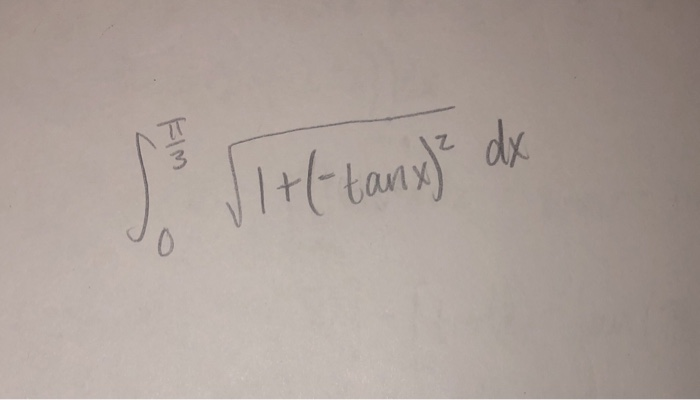 ∫₀^{π/3} √(1+(-tanx)²) dx